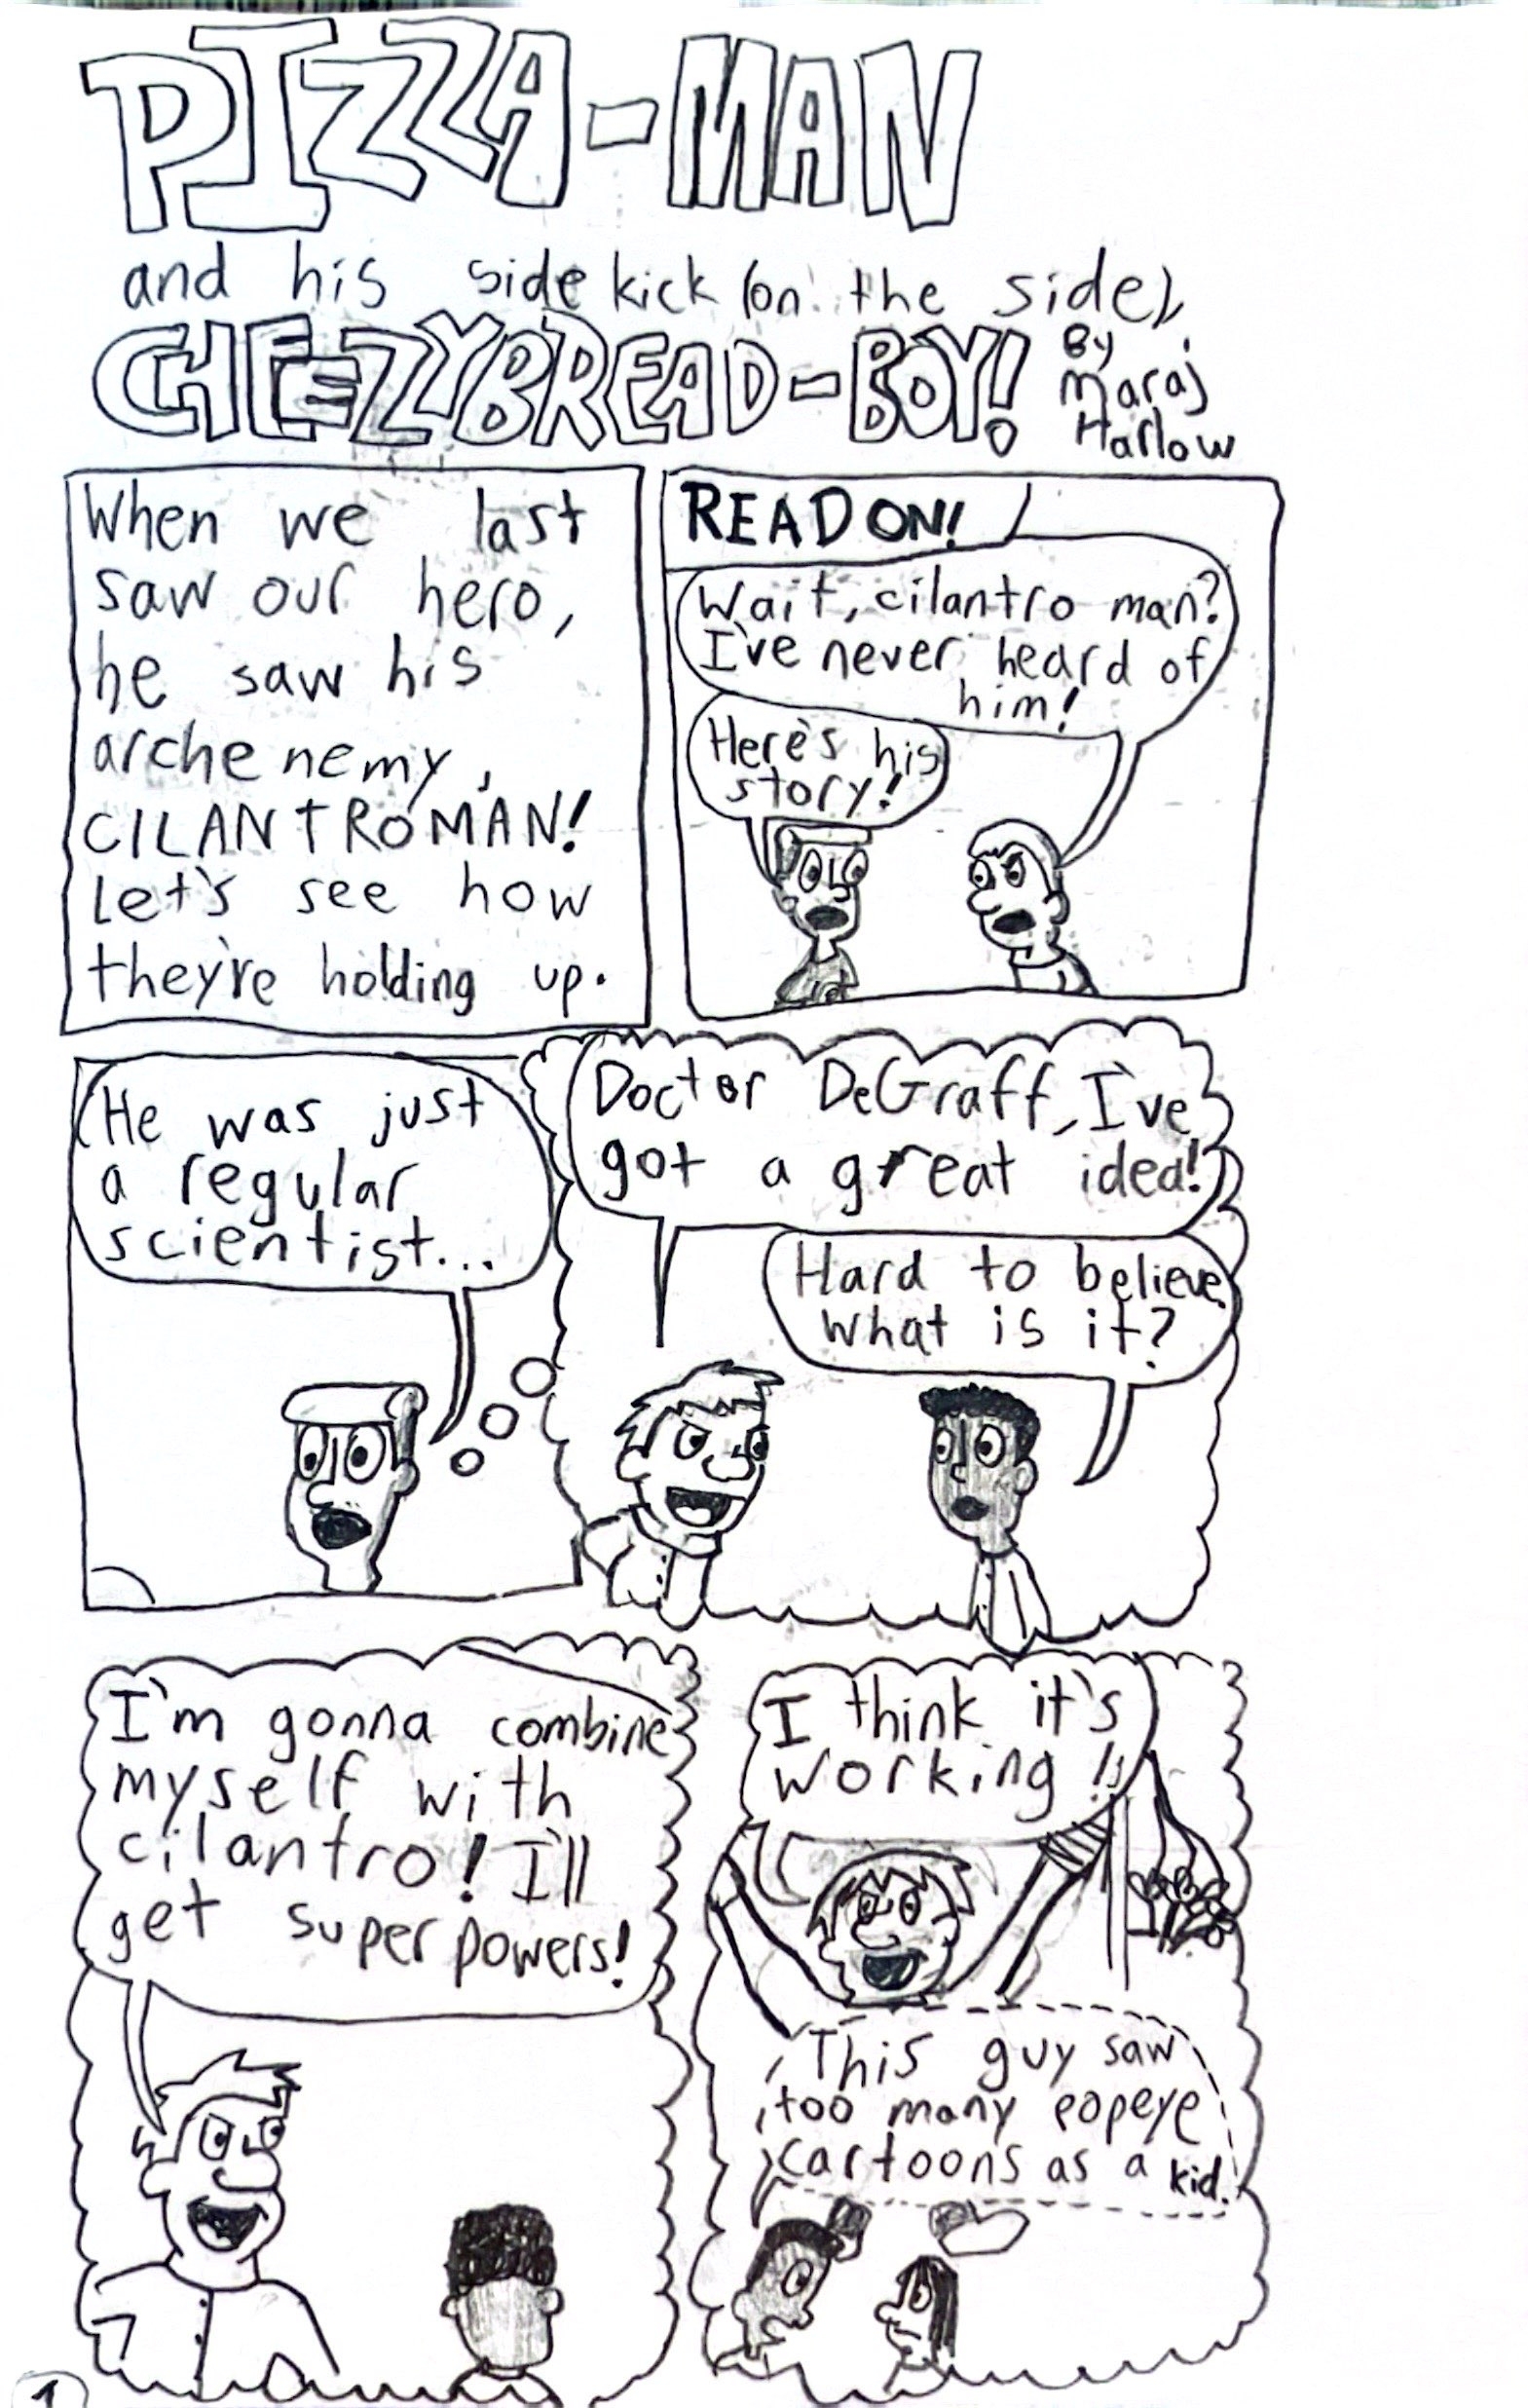 PIZZA-MAN
and his side kick (on the side),
CHEEZYBREAD-BOY!
By
Maraj
Harlow
When we last
saw our hero,
he saw his
arche nemy,
CILANTROMAN!
Let's see how
they're holding up.
READ ON!
Wait, cilantro man?
I've never heard of
him!
Here's his
story!
He was just
a regular
scientist...
Doctor DeGraff, I've
got a great idea!
Hard to believe.
What is it?
I'm gonna combine
myself with
cilantro! I'll
get super powers!
I think it's
working!!
This guy saw
too many popeye
cartoons as a kid.
1